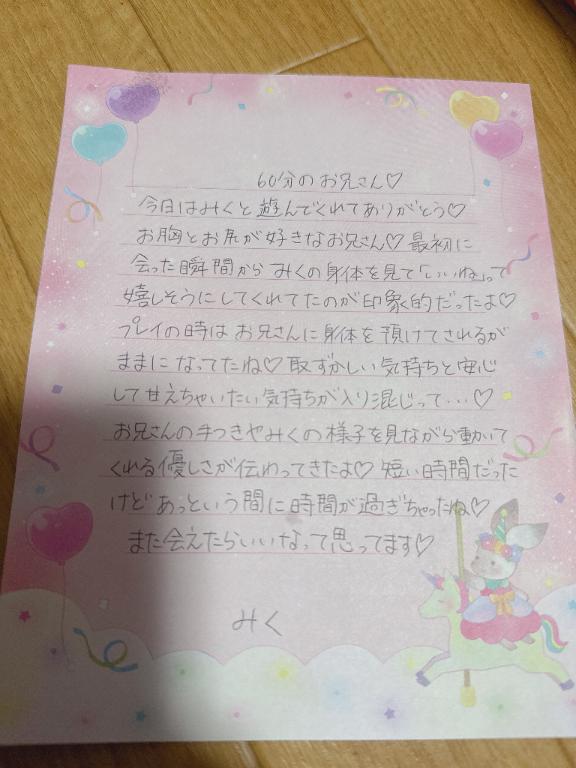 60分のお兄さん♡
今日はみくと遊んでくれてありがとう♡
お胸とお尻が好きなお兄さん♡ 最初に
会った瞬間からみくの身体を見て「いいね」って
嬉しそうにしてくれてたのが印象的だったよ♡
プレイの時はお兄さんに身体を預けてされるが
ままになってたね♡ 恥ずかしい気持ちと安心
して甘えちゃいたい気持ちが入り混じって…♡
お兄さんの手つきやみくの様子を見ながら動いて
くれる優しさが伝わってきたよ♡ 短い時間だった
けどあっという間に時間が過ぎちゃったね♡
また会えたらいいなって思ってます♡
みく